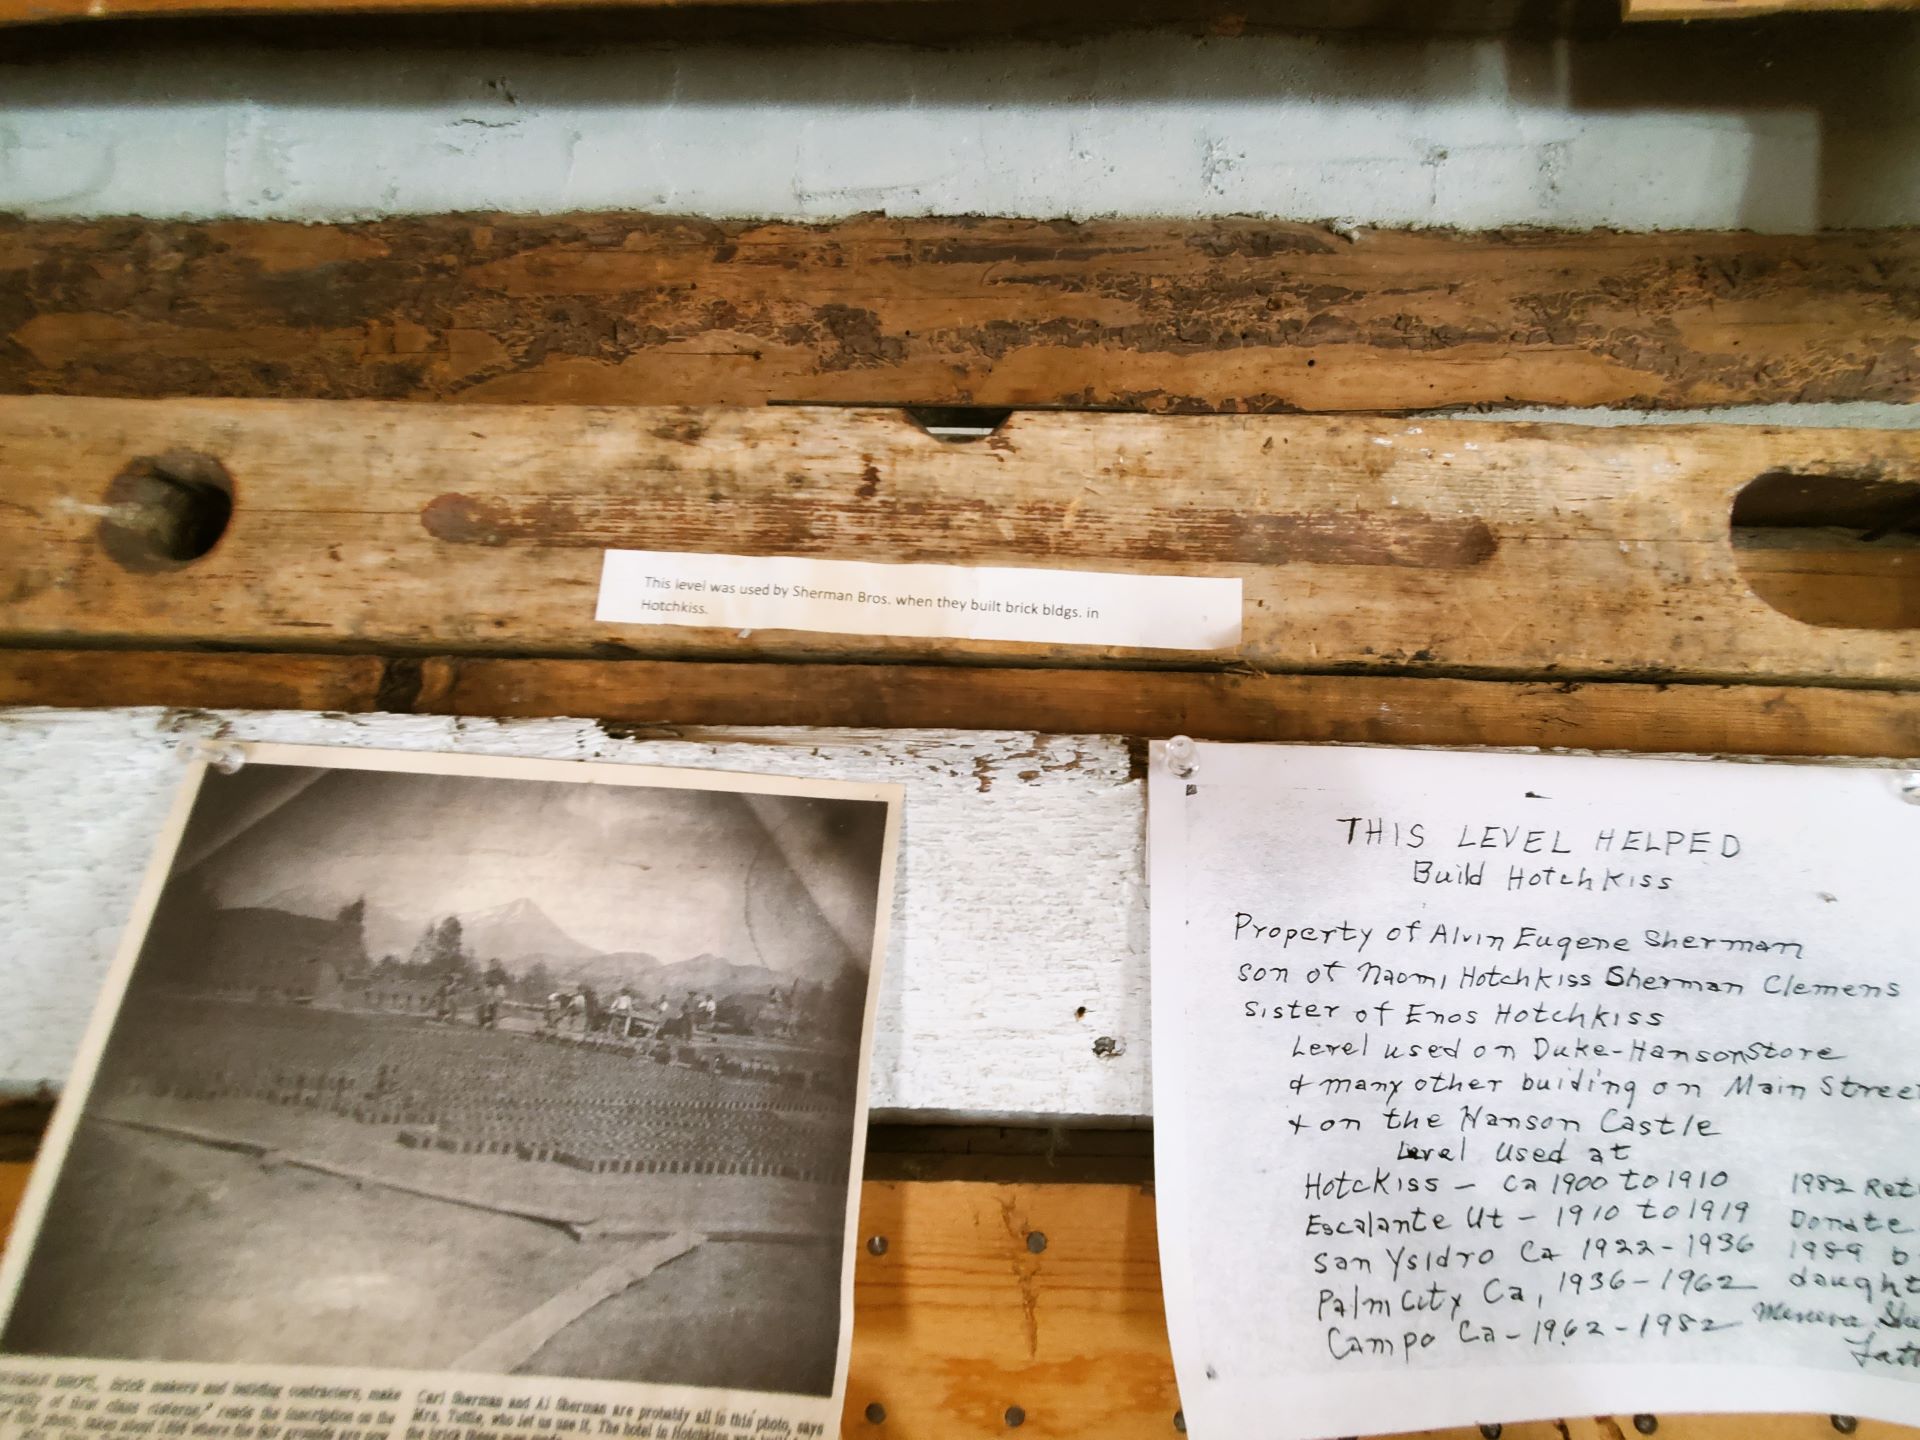 This level was used by Sherman Bros. when they built brick bldgs. in
Hotchkiss.
THIS LEVEL HELPED
Build Hotchkiss
Property of Alvin Eugene Sherman
son of Naomi Hotchkiss Sherman Clemens
sister of Enos Hotchkiss
Level used on Duke-Hanson Store
& many other buiding on Main Street
& on the Hanson Castle
Level used at
Hotckiss - Ca 1900 to 1910 1982 Ret
Escalante Ut - 1910 to 1919 Donate
San Ysidro Ca 1922-1936 1989 b
Palm City Ca, 1936-1962 daught
Campo Ca-1962-1982
brick makers and building contractors, make
of first class cisterns," reads the inscription on the
photo, taken about where the fair grounds are now
Carl Sherman and Al Sherman are probably all in this photo, says
Mrs. Tuttle, who let us use it. The hotel in Hotchkiss was
the brick these men made